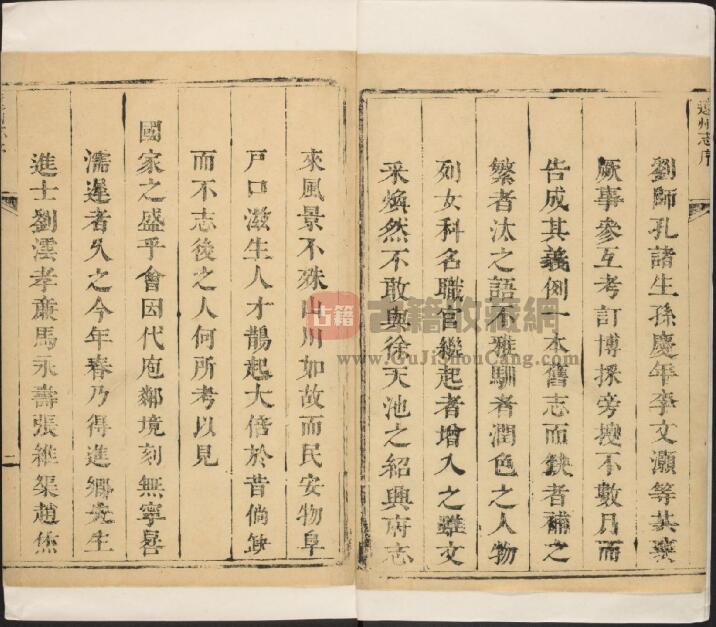 遼州志序
劉師孔諸生孫慶年李文灝等共襄
厥事參互考訂博採旁搜不數月而
告成其義例一本舊志而缺者補之
繁者汰之語不雅馴者潤色之人物
列女科名職官繼起者增入之雖文
采煥然不敢與徐天池之紹興府志
來風景不殊山川如故而民安物阜
戶口滋生人才鵲起大倍於昔倘缺
而不志後之人何所考以見
國家之盛乎會因代庖鄰境刻無寧晷
濡遲者久之今年春乃得進鄉先生
進士劉澐孝廉馬永壽張維渠趙焦
二
古籍
古籍收藏網
www.GuJiShouCang.com